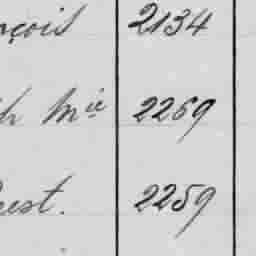 nçois 2134
h Mie 2269
uest. 2259